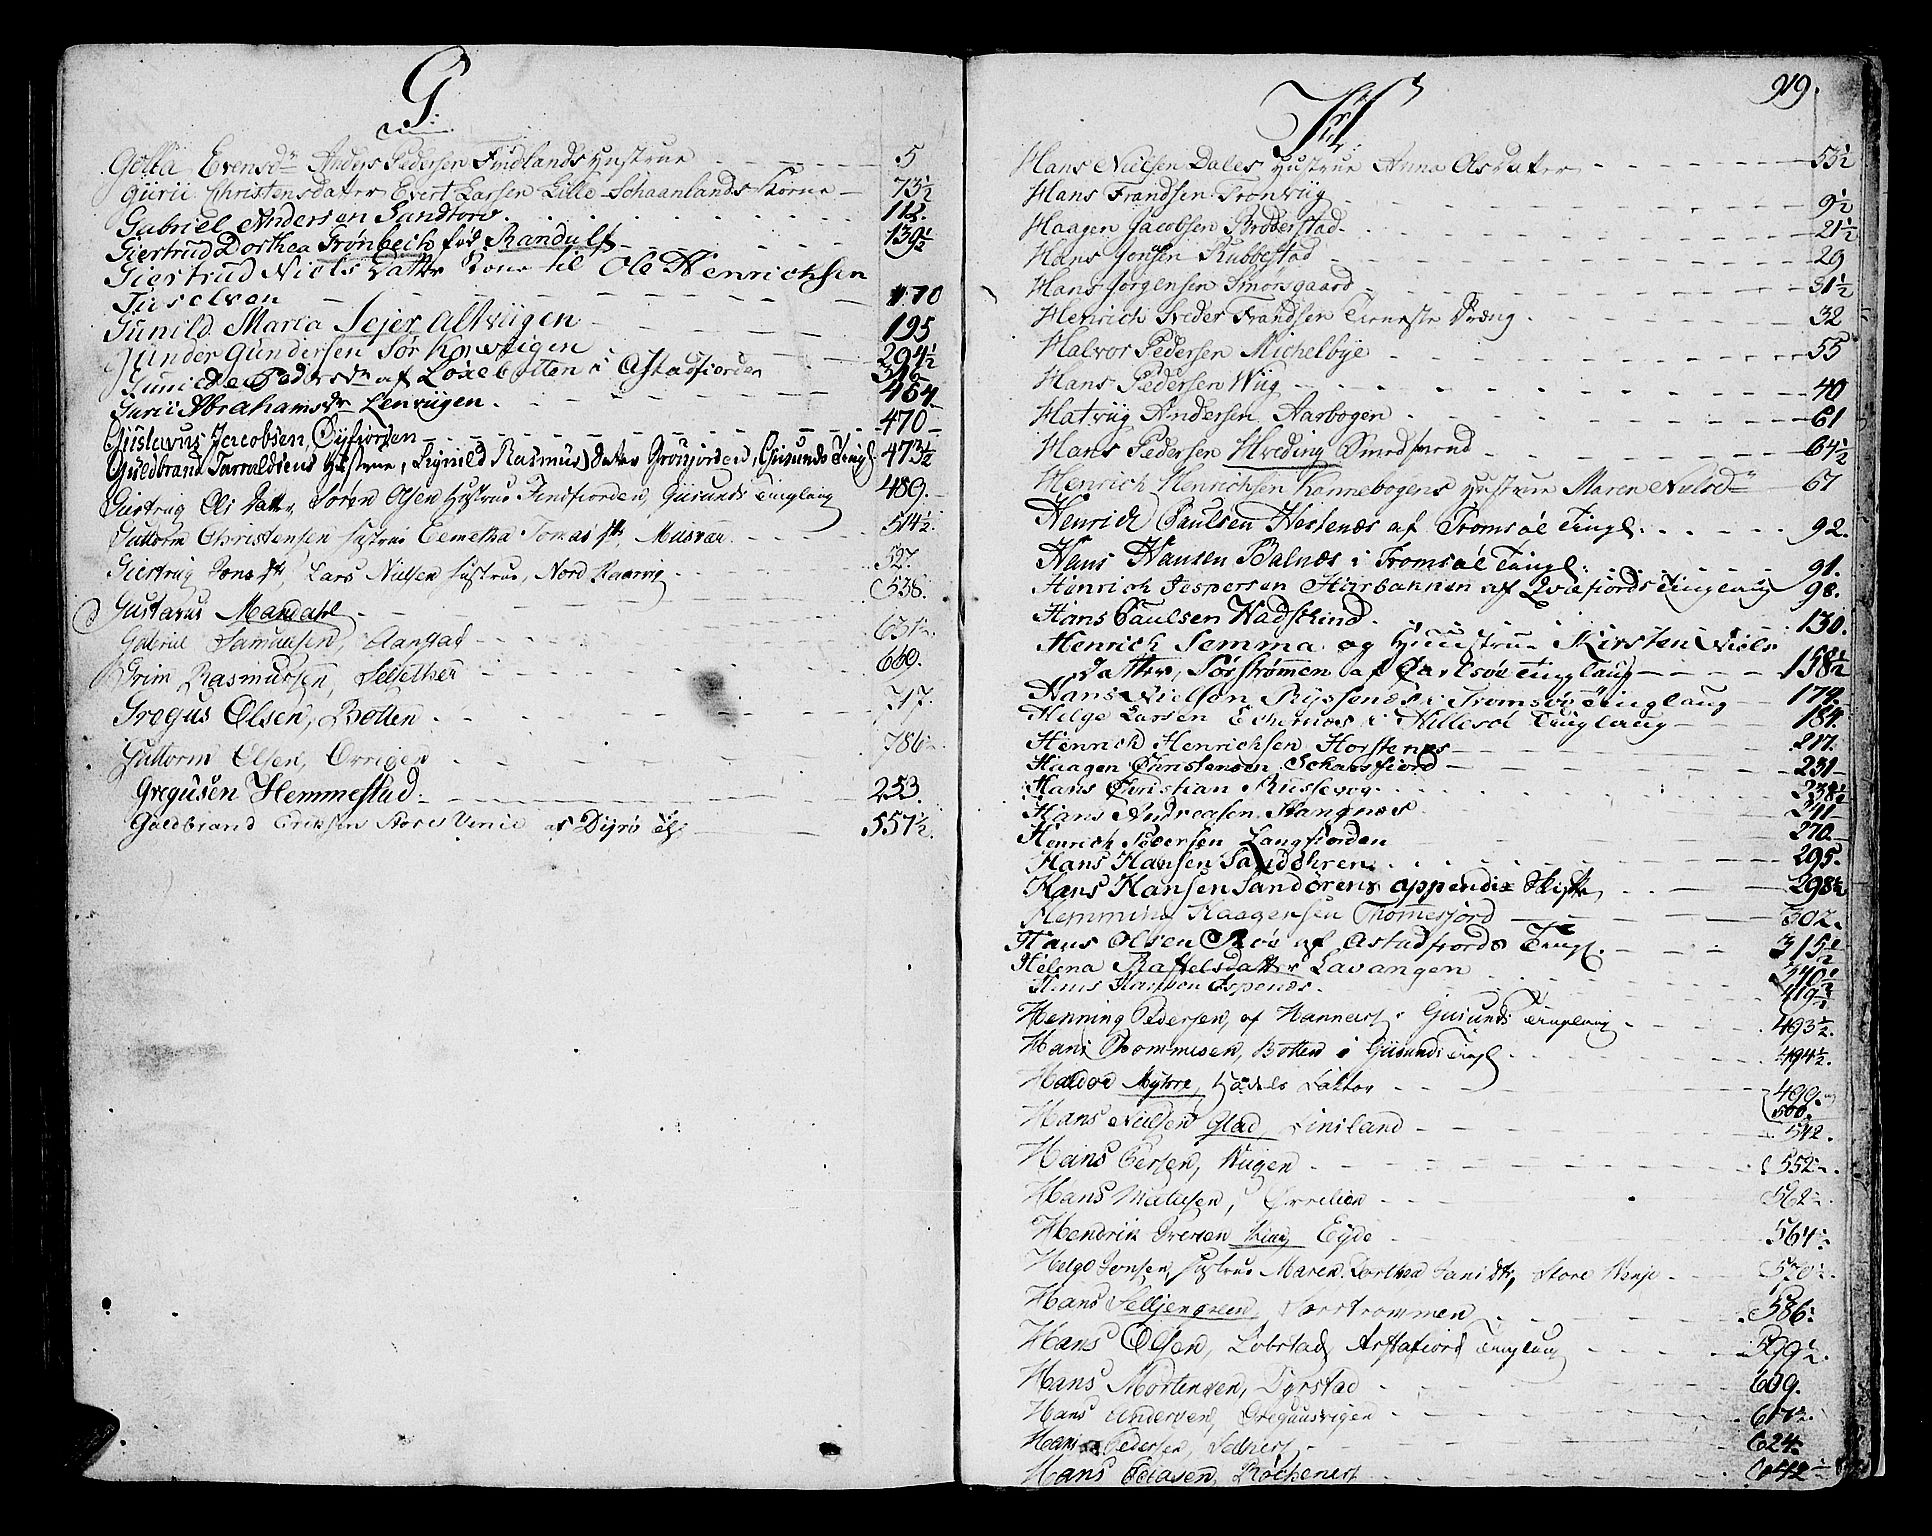 G
Golla Evensdr Anders Pedersen Findlands Hustrue 5
Gurii Christensdatter Evert Larsen Lille-Schaanlands Kone 73½
Gabriel Andersen Sandtorv 112.
Giertrud Dorthea Trønbech fød Randulf 139½
Giertrud Niels Datter Kone til Ole Henrichsen
Tiselvon 170
Gunild Maria Jejer Altviigen 195
Gunder Gundersen Sør 294½
Pedersdr af Løxebotten i Astadfiorden 316
Gurii Abrahamsdr Lenviigen 464.
Gustavus Jacobsen, Øyfiorden 470
Guldbrand Tarraldsens Hustrue, Signild Rasmus Datter Grønjorden, Giisunds Tingl. 473½
Giertrug Ols Datter, Søren Olsen Hustrue Findfiorden, Giisunds Tinglaug 489.
Guttorm Christensen Hustrue Tomas dtr, Musvær 514½.
Giertrug Jons dtr, Lars Nielsen Hustrue, Nord 527.
Gustavus Mandahl 538.
Gabriel Samuelsen, Aangstad 631½.
Grim Rasmussen, 669.
Gregus Olsen, Botten 717.
Guttorm Olsen, Orrigen 786½
Gregusen Hemmestad 253.
Guldbrand Eriksen Store Venie af Dyrø Tgl. 557½.
H 919.
Hans Nielsen Dales Hustrue Anna Olsdatter 5½
Hans Frandsen Tronviig 9½
Haagen Jacobsen Brøderstad 21½
Hans Jonsen Rubbestad 29
Hans Jørgensen Smørsgaard 31½
Henrich Freder Frandsen Tieneste Dræng 32
Halvor Pedersen Michelbye 55
Hans Pedersen Wiig 40
Hatviig Andersen Aarbogen 61
Hans Pedersen Hveding Smedsvend 64½
Henrich Henrichsen Kannebogens Hustrue Maren Nielsdr 67
Henrich Paulsen Hestenæs af Tromsøe Tingl. 92.
Hans Hansen Balnæs i Tromsøe Tingl. 91.
Henrich Jespersen Haarbakken af Qvæfiords Tinglaug 98.
Hans Paulsen Wadstrind 130.
Henrich Semma og Huustrue Kirsten Niels
Datter, Sørstrømmen af Carlsøe Tinglaug 158½
Hans Nielsen Ryssenæs i Tromsøe Tinglaug 179.
Helge Larsen i Hillesøe Tinglaug 184.
Henrich Henrichsen Horstenæs 217.
Haagen Christensen Schaasfiord 231
Hans Christian Russevog 238½
Hans Andreasen Stangnæs 241
Henrich Pedersen Langfiorden 270
Hans Hansen Sandøhren 295.
Hans Hansen Sandørens appendix Skifte 298½
Hemming Haagensen Trommesfjord 302.
Hans Olsen Moe af Astadfiords Tingl. 315½
Helena Raffelsdatter Lavangen 340½
Hans Hansen Espenæs 419½
Henning Pedersen, af Hannæs i Giisunds Tinglaug 493½.
Hans Thommesen, Botten i Giisunds Tingl 494½.
Haldor Myhre, Lakter 499.
500.
Hans Nielsen Glad, Finland 542.
Hans Persen, Wigen 552
Hans 562
Hendrik Iversen King Eyde 564
Helge Jonsen, Hustrue Maren Dorthea Hansdtr, Store Wenje 570
Hans Selljengreen, Sørstrømmen 586
Hans Olsen, Lobstad, Astafiord Tinglaug 599½
Hans Mortensen, Dyrstad 609.
Hans Andersen, Gregusvigen 617½
Hans Pedersen, 624
Hans Eliasen, Røchenes 642